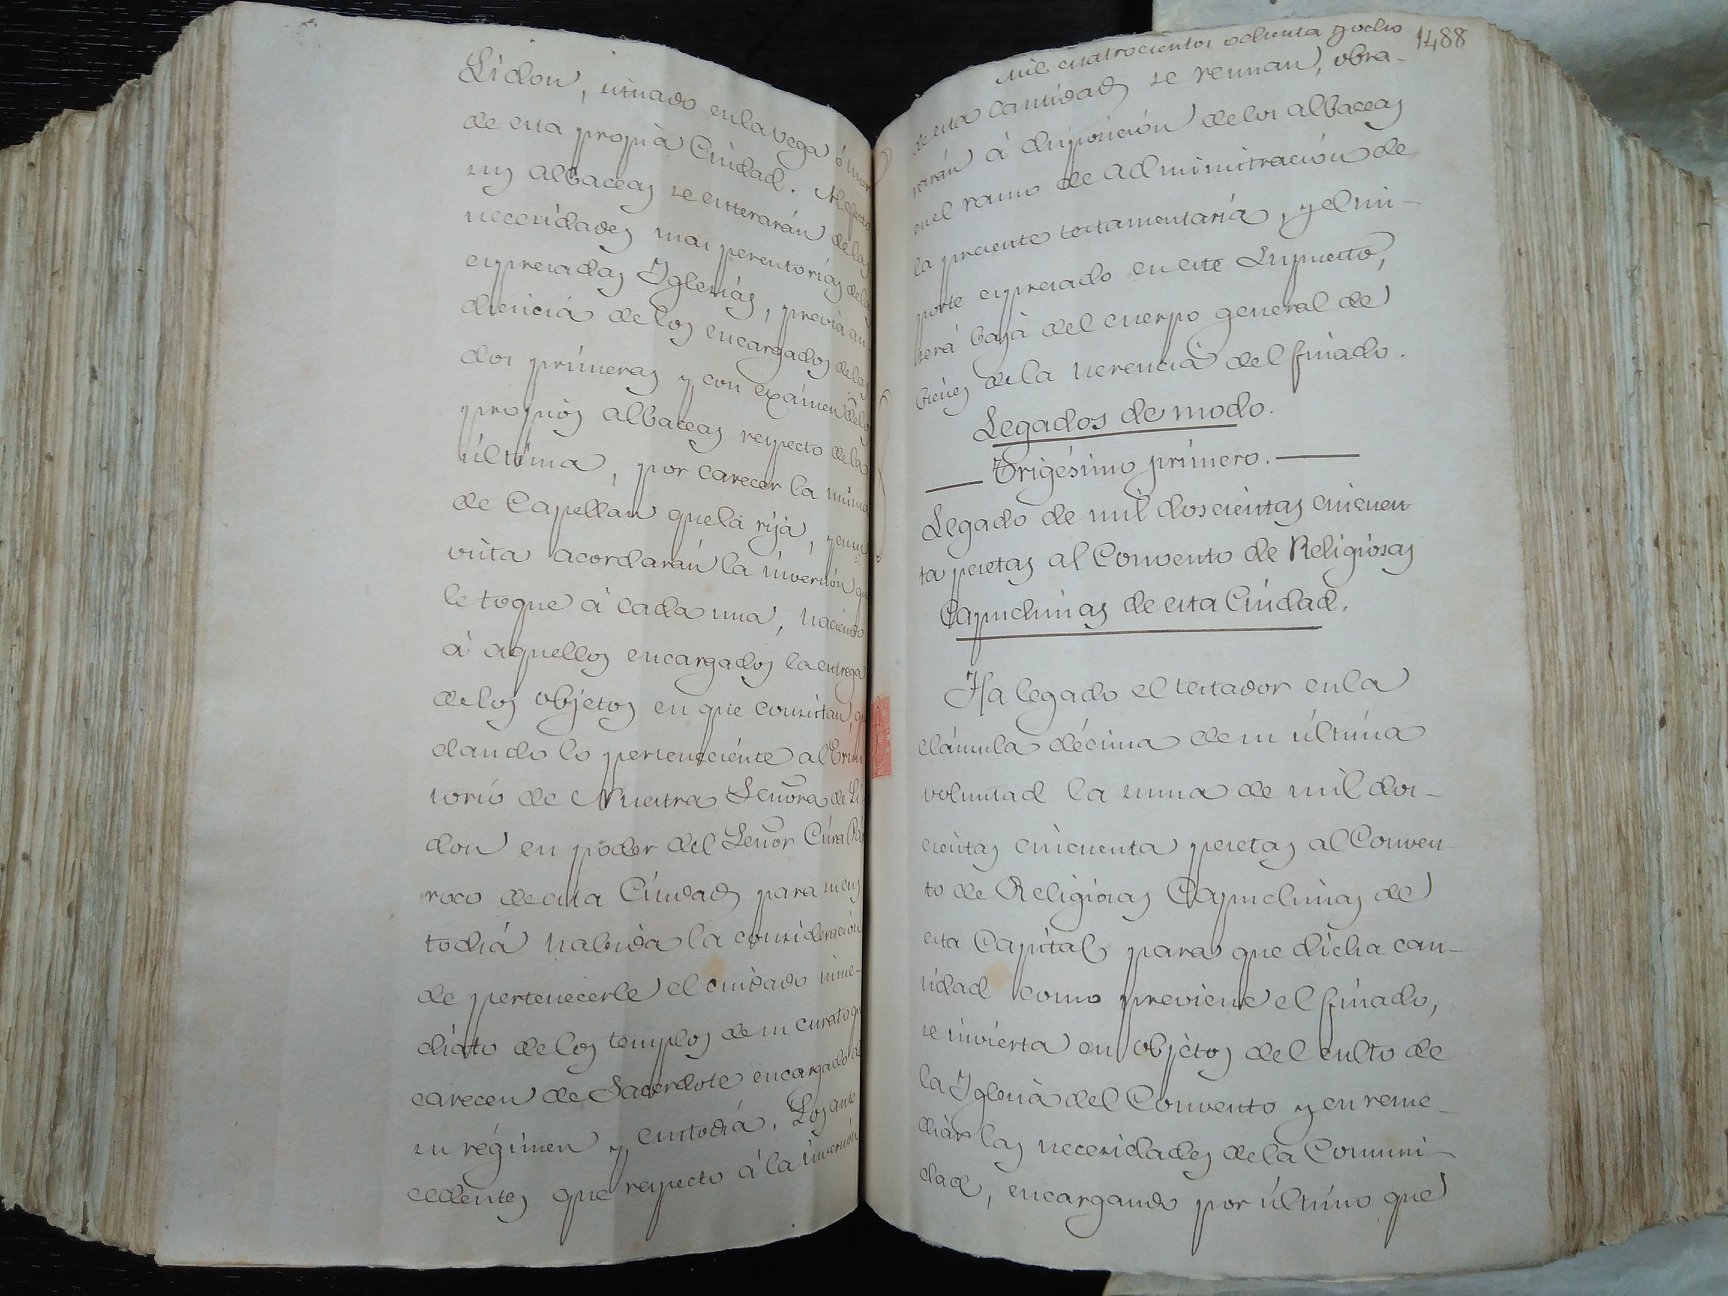 Lidon, situado en la vega ó
de esta propia Ciudad. Al efecto
sus albaceas se enterarán de las
necesidades mas perentorias de las
expresadas Iglesias, previa au
diencia de los encargados de las
dos primeras y con exámen de los
propios albaceas respecto de la
última, por carecer la misma
de Capellan que la rija, y en su
vista acordarán la inversión que
le toque á cada una, haciendo
á aquellos encargados la entrega
de los objetos en que consistan,
dando lo perteneciente al Ermi
torio de Nuestra Señora de Li
don en poder del Señor Cura Pá
rroco de esta Ciudad para su cus
todia habida la consideración
de pertenecerle el cuidado inme-
diato de los templos de su curato que
carecen de Sacerdote encargado de
su régimen y custodia. Los ante
cedentes que respecto á la inversión
Mil cuatrocientos ochenta y ocho 1488
de esta cantidad se reunan, obra-
rán á disposición de los albaceas
en el ramo de administración de
la presente testamentaría, y el im-
porte expresado en este Supuesto,
será baja del cuerpo general de
bienes de la herencia del finado.
Legados de modo.
Trigésimo primero.
Legado de mil doscientas cincuen
ta pesetas al Convento de Religiosas
Capuchinas de esta Ciudad.
Ha legado el testador en la
cláusula décima de su última
voluntad la suma de mil dos-
cientas cincuenta pesetas al Conven-
to de Religiosas Capuchinas de
esta Capital para que dicha can-
tidad como previene el finado,
se invierta en objetos del culto de
la Iglesia del Convento y en reme-
diar las necesidades de la Comuni-
dad, encargando por último que